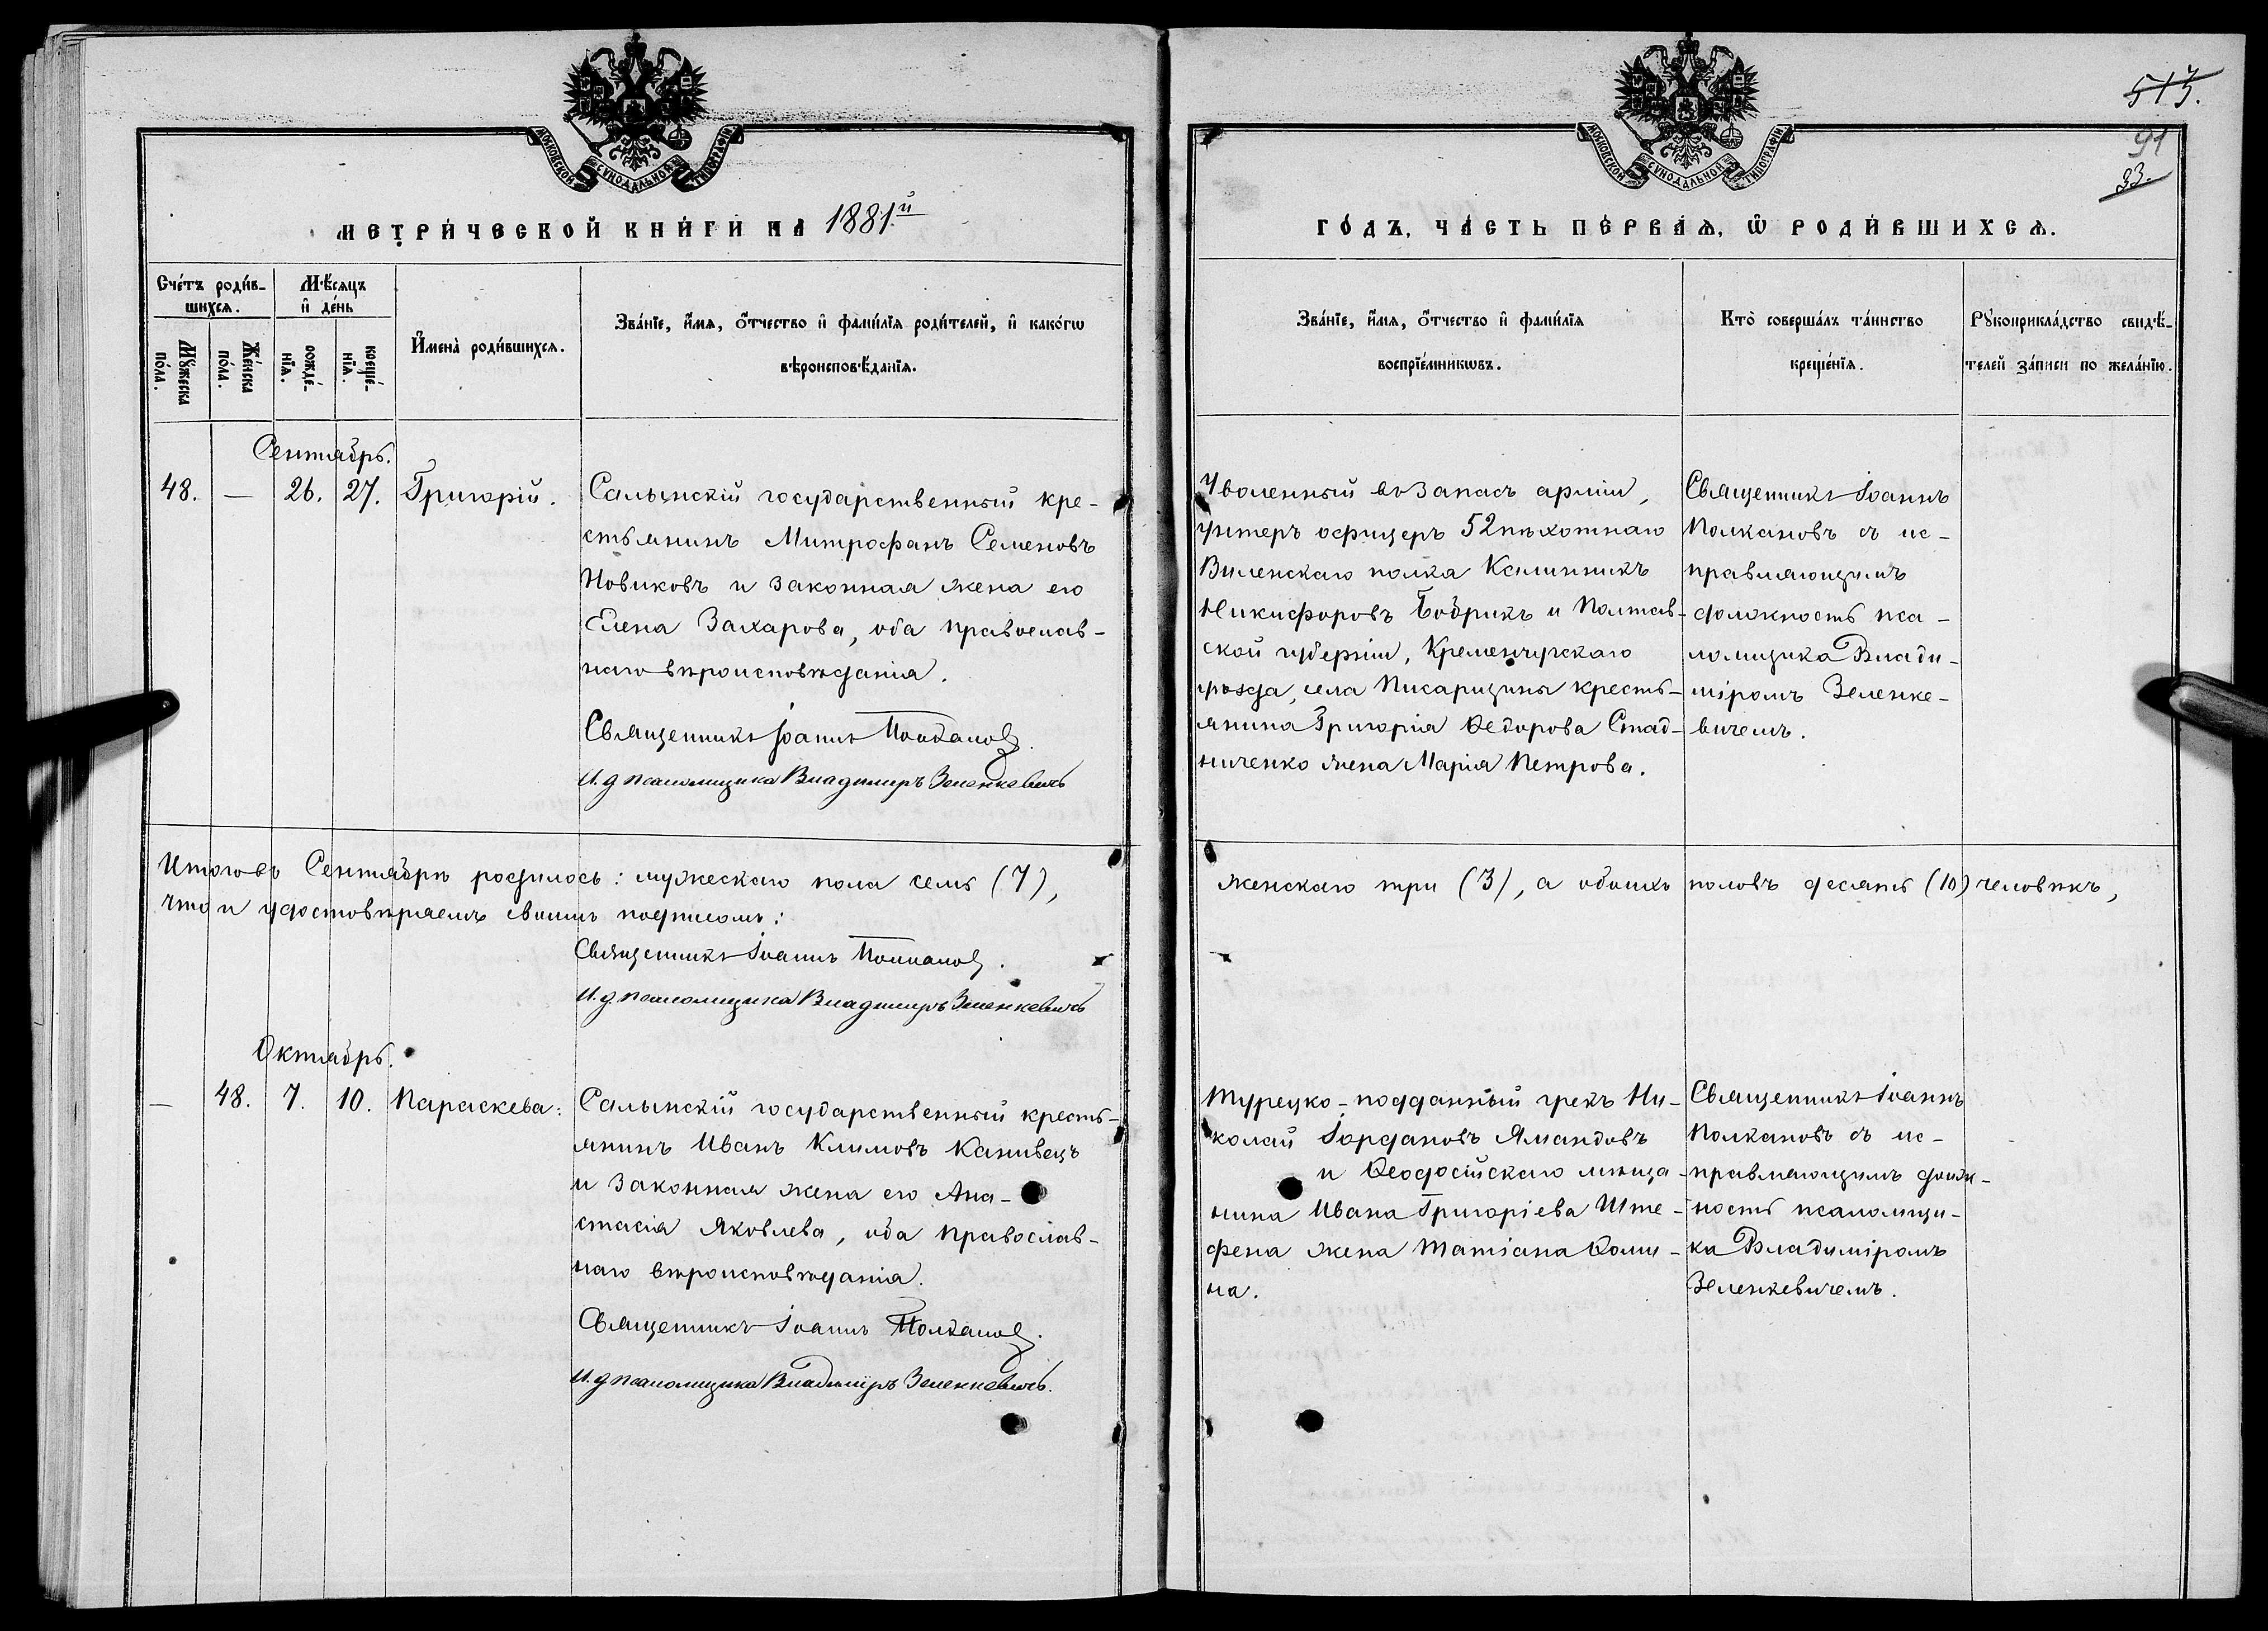 МОСКОВСКОЙ СѴНОДАЛЬНОЙ ТИПОГРАФІИ
МЕТРИ́ЧЕСКОЙ КНИ́ГИ НА 1881.й
Сче́тъ роди́в-
шихсѧ.
Мѣ́сяцъ
и҆ де́нь
Мꙋ́жеска
по́ла.
Же́нска
по́ла.
рожде́-
нїѧ.
креще́-
нїѧ.
И҆мена̀ роди́вшихсѧ.
Зва́нїе, и҆́мѧ, ѻ҆́тчество и҆ фами́лїѧ роди́телей, и҆ како́гѡ
вѣроисповѣ́данїѧ.
Сентябрь.
48. — 26. 27. Григорій.
Салынскій государственный кре-
стьянинъ Митрофанъ Семеновъ
Новиковъ и законная жена его
Елена Захарова, оба православ-
наго вѣроисповѣданія.
Священникъ Іоаннъ Полкановъ.
И. д. псаломщика Владимиръ Зеленкевичъ
Итого въ Сентябрѣ родилось: мужескаго пола семь (7),
что и удостовѣряемъ своимъ подписомъ:
Священникъ Іоаннъ Полкановъ.
И. д. псаломщика Владимиръ Зеленкевичъ
Октябрь.
— 48. 7. 10. Параскева:
Салынскій государственный кресть-
янинъ Иванъ Климовъ Канивецъ
и законная жена его Ана-
стасія Яковлева, оба православ-
наго вѣроисповѣданія.
Священникъ Іоаннъ Полкановъ.
И. д. псаломщика Владиміръ Зеленкевичъ.
513.
91
33.
МОСКОВСКОЙ СѴНОДАЛЬНОЙ ТИПОГРАФІИ
ГО́ДЪ, ЧА́СТЬ ПЕ́РВАѦ, Ѡ҆ РОДИ́ВШИХСѦ.
Зва́нїе, и҆́мѧ, ѻ҆́тчество и҆ фами́лїѧ
воспрїе́мникѡвъ.
Кто̀ соверша́лъ та́инство
креще́нїѧ.
Рꙋкоприкла́дство свидѣ́-
телей за́писи по жела́нїю.
Уволенный въ запасъ арміи,
унтеръ офицеръ 52 пѣхотнаго
Виленскаго полка Калинникъ
Никифоровъ Бобрикъ и Полтав-
ской губерніи, Кременчугскаго
уѣзда, села Писарщины кресть-
янина Григорія Ѳедорова Стад-
ниченко жена Марія Петрова.
Священникъ Іоаннъ
Полкановъ съ ис-
правляющимъ
должность пса-
ломщика Влади-
міромъ Зеленке-
вичемъ.
женскаго три (3), а обоихъ половъ десять (10) человѣкъ,
Турецко-подданный грекъ Ни-
колай Іордановъ Ямандовъ
и Ѳеодосійскаго мѣща-
нина Ивана Григоріева Ште-
фена жена Татіана Ѳоми-
на.
Священникъ Іоаннъ
Полкановъ съ ис-
правляющимъ долж-
ность псаломщи-
ка Владиміромъ
Зеленкевичемъ.